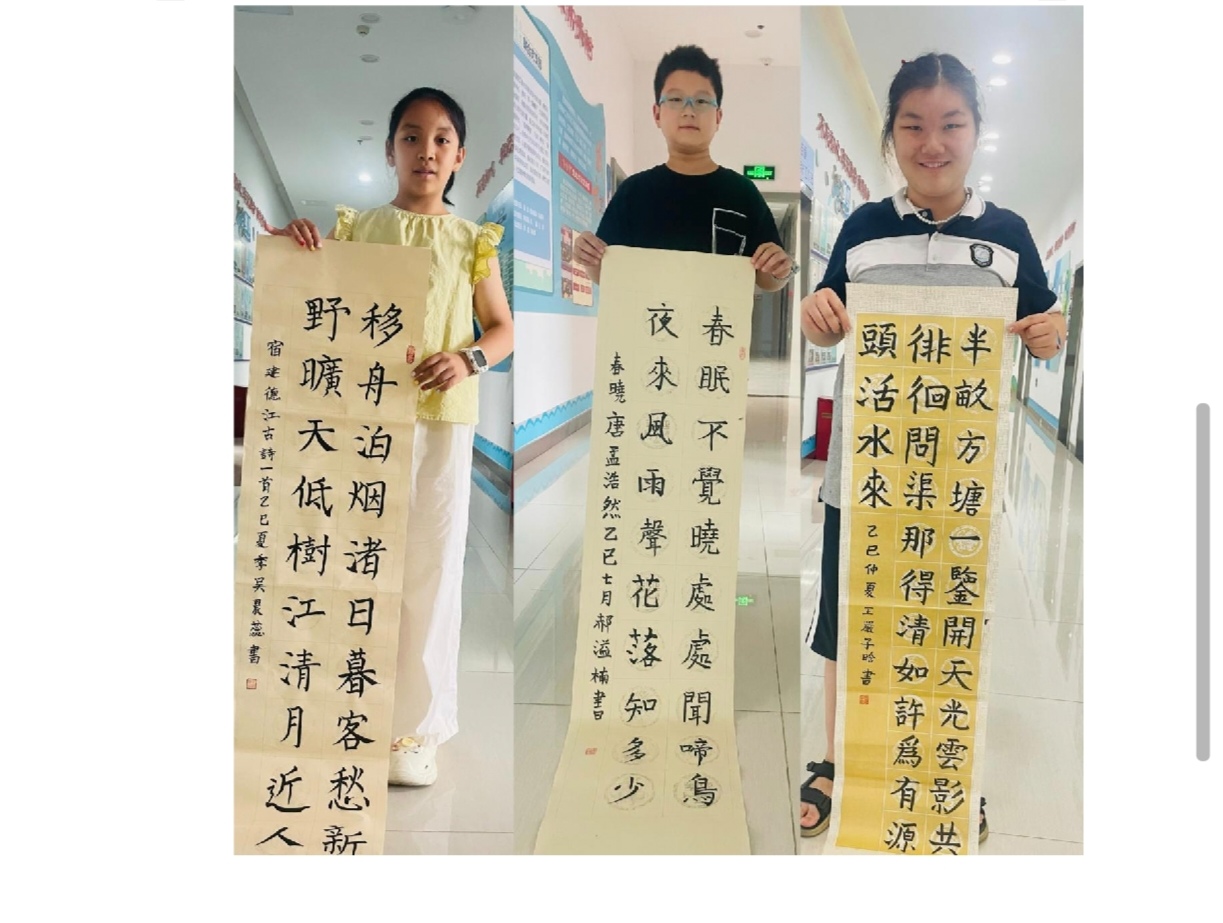 移舟泊烟渚日暮客愁新
野曠天低樹江清月近人
宿建德江古詩一首乙巳夏季吴晨蕊書
春眠不覺曉處處聞啼鳥
夜來風雨聲花落知多少
春曉唐孟浩然乙巳七月郝溢楠書
半畝方塘一鑒開天光雲影共
徘徊問渠那得清如許爲有源
頭活水來
乙巳仲夏王嚴子晗書